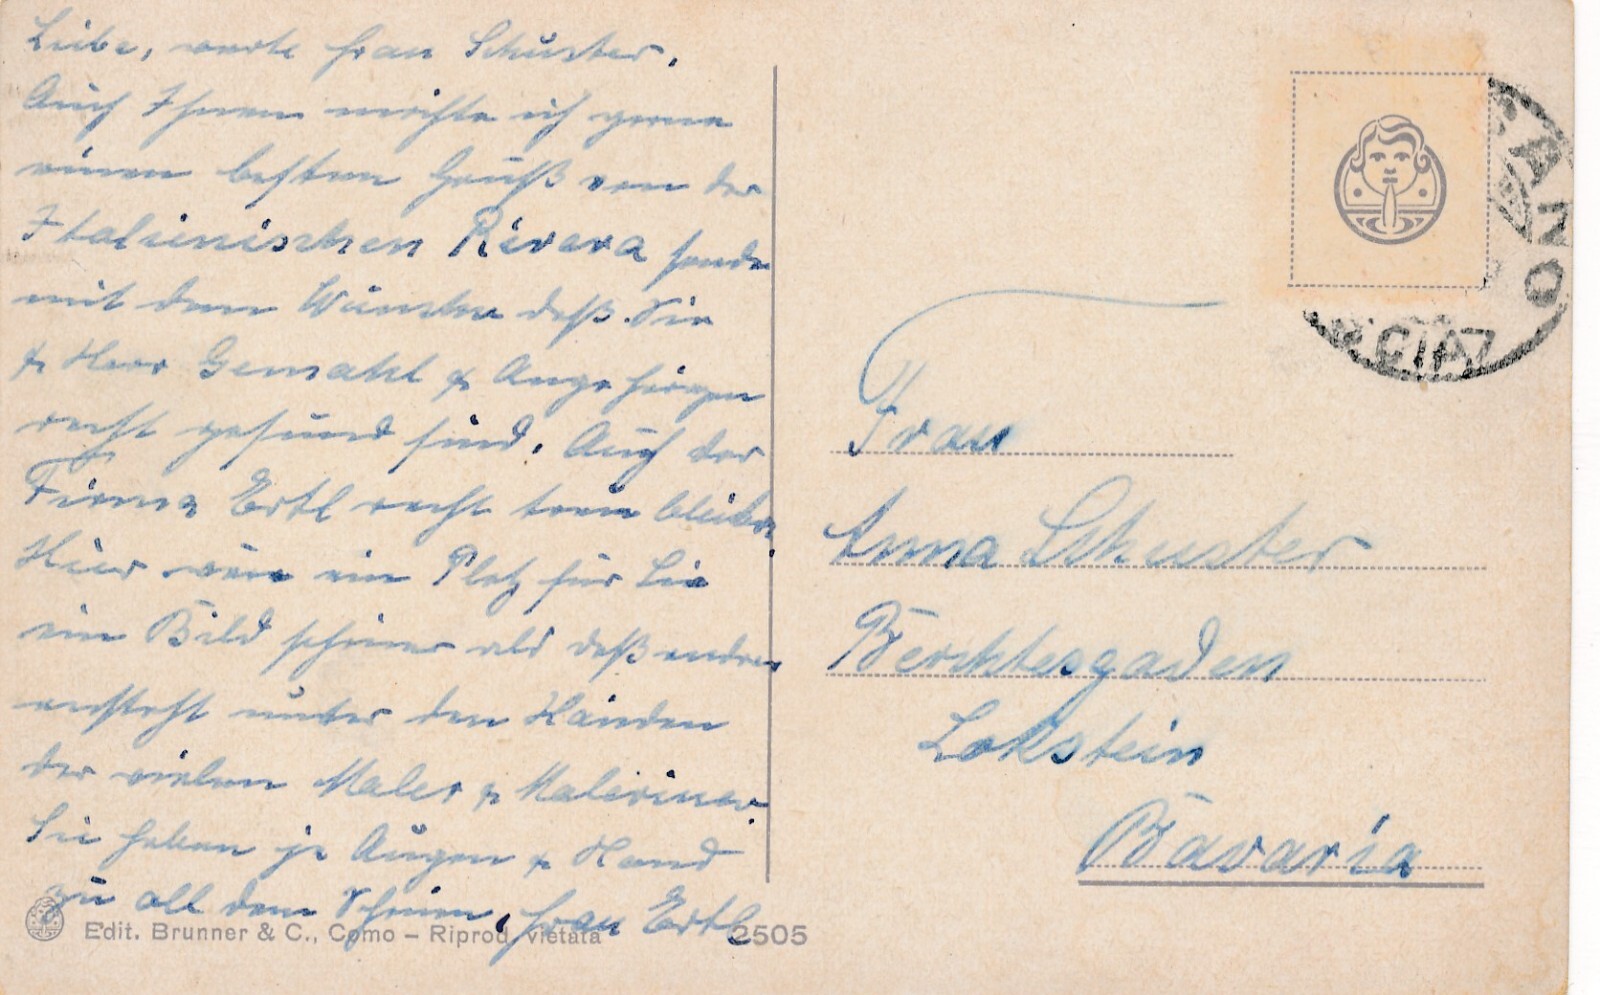 Liebe, werte Frau Schuster.
Auch Ihnen möchte ich gerne
einen besten Gruß von der
Italienischen Rivera sende
mit dem Wunsche daß Sie
& Herr Gemahl & Angehörigen
recht gesund sind. Auch der
Firma Ertl recht treu bleiben.
Hier wäre ein Platz für Sie
ein Bild schöner als daß andere
entsteht unter den Händen
der vielen Maler & Malerinnen.
Sie haben ja Augen & Hand
zu all dem Schönen, Frau Ertl
Edit. Brunner & C., Como – Riprod. vietata 2505
Frau
Anna Schuster
Berchtesgaden
Lokstein
Bavaria